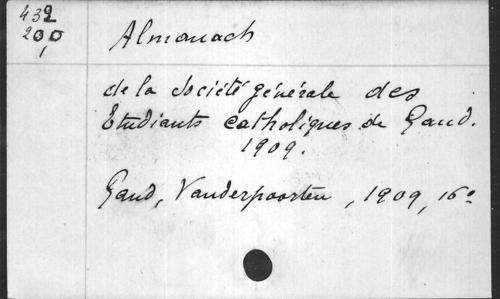 439
200
1
Almanach
de la Société générale des
Etudiants catholiques de Gand.
1909.
Gand, Vanderpoorten, 1909, 16°